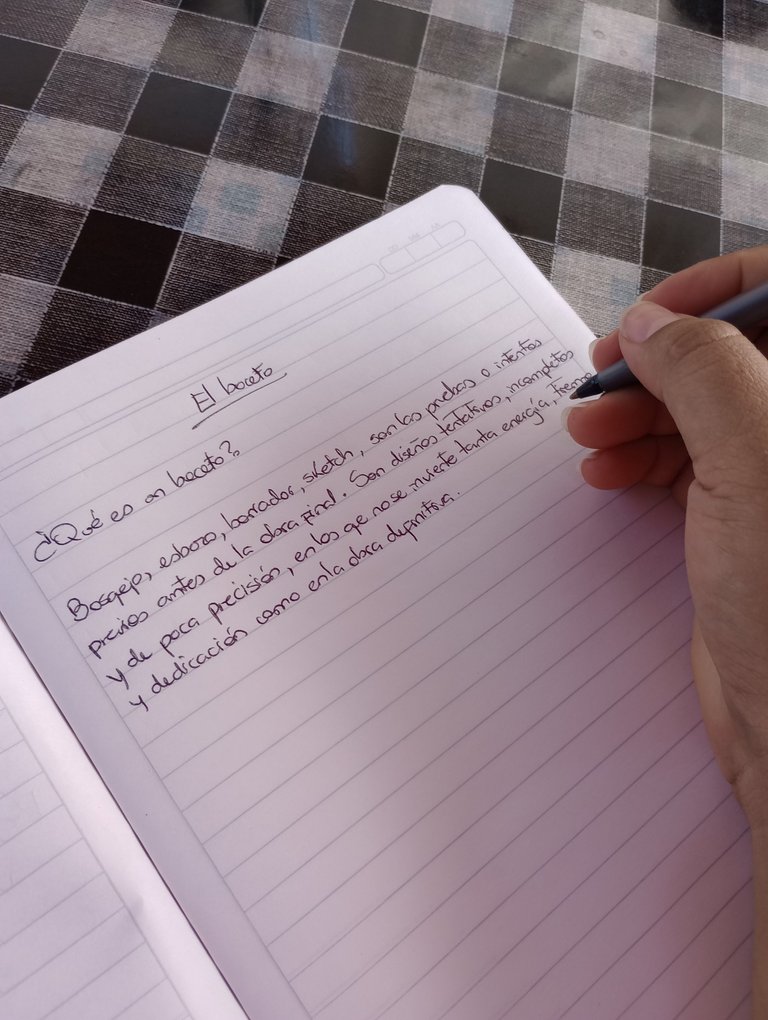 El boceto
¿Qué es un boceto?
Bosquejo, esbozo, borrador, sketch, son las pruebas o intentos
previos antes de la obra final. Son diseños tentativos, incompletos
y de poca precisión, en los que no se invierte tanta energía,
y dedicación como en la obra definitiva.